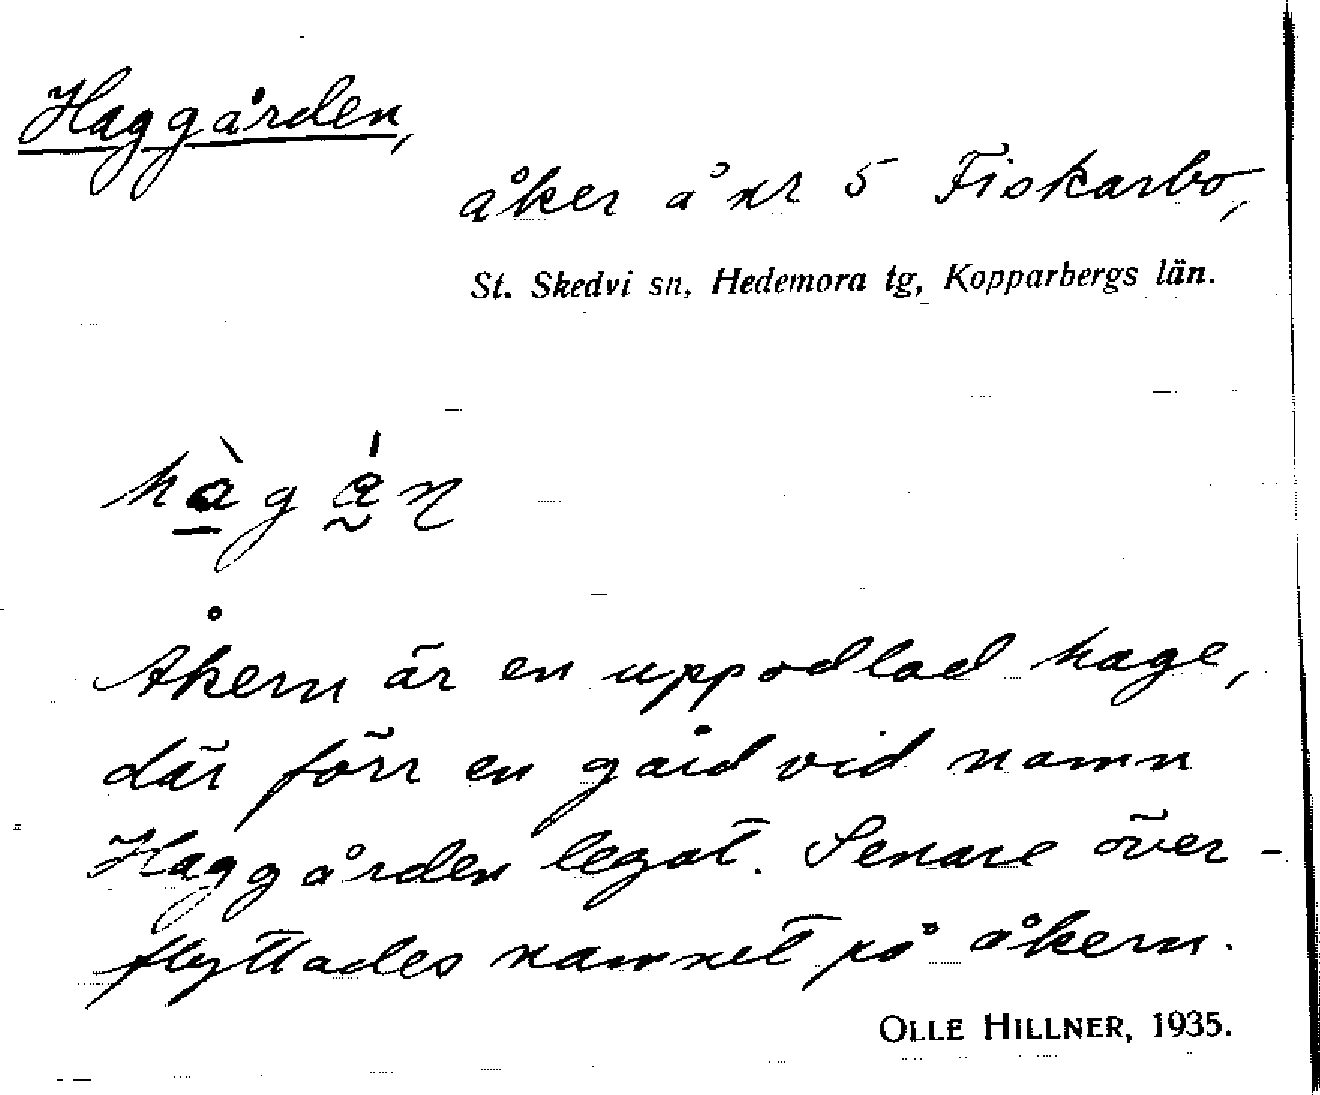 Haggården,
åker å nr 5 Fiskarbo,
St. Skedvi sn, Hedemora tg, Kopparbergs län.
Åkern är en uppodlad hage,
där förr en gård vid namn
Haggården legat. Senare över-
flyttades namnet på åkern.
OLLE HILLNER, 1935.